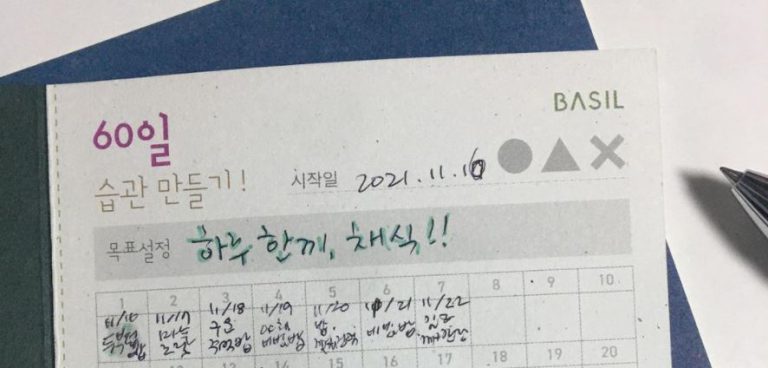 BASIL
60일
습관 만들기!
시작일 2021.11.16
목표설정 하루 한끼, 채식!!
1 2 3 4 5 6 7 8 9 10
11/16 11/17 11/18 11/19 11/20 11/21 11/22
마늘 구운 야채 밤, 비빔밥 김과
주먹밥 비빔밥
12 13 14 15 16 17 18 19 20